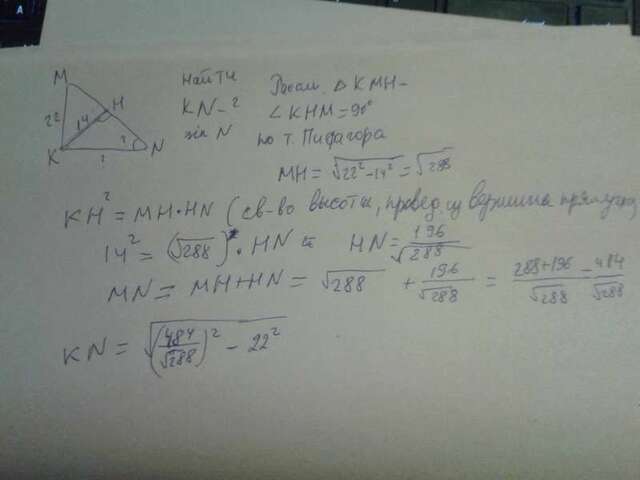 M
H
22
14
K
?
?
N
Найти
KN-?
sin N
Рассм. △ KMH -
∠ KHM = 90°
по т. Пифагора
MH = √22² - 14² = √288
KH² = MH·HN (св-во высоты, провед. из вершины прям. угла)
14² = (√288) · HN = HN = 196/√288
MN = MH + HN = √288 + 196/√288 = 288+196/√288 = 484/√288
KN = √(484/√288)² - 22²